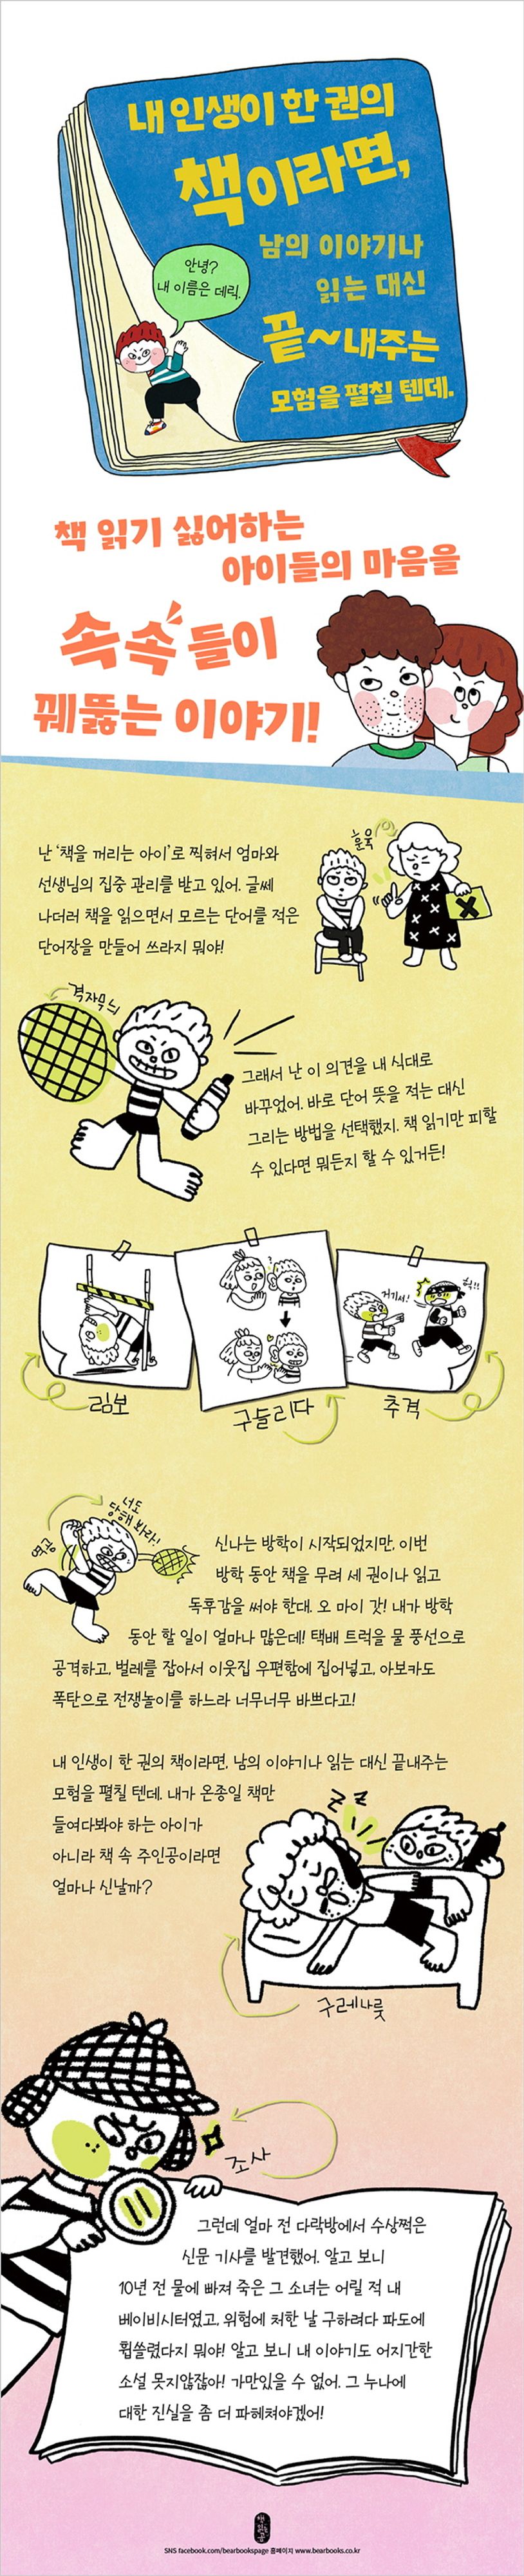 내 인생이 한 권의
책이라면,
남의 이야기나
읽는 대신
끝~내주는
모험을 펼칠 텐데.
안녕?
내 이름은 데릭.
책 읽기 싫어하는
아이들의 마음을
속속들이
꿰뚫는 이야기!
난 ‘책을 꺼리는 아이’로 찍혀서 엄마와
선생님의 집중 관리를 받고 있어. 글쎄
나더러 책을 읽으면서 모르는 단어를 적은
단어장을 만들어 쓰라지 뭐야!
훈육
격자무늬
그래서 난 이 의견을 내 식대로
바꾸었어. 바로 단어 뜻을 적는 대신
그리는 방법을 선택했지. 책 읽기만 피할
수 있다면 뭐든지 할 수 있거든!
거기서!
헉!!
림보
구슬리다
추격
역공
너도
당해 봐라!
신나는 방학이 시작되었지만, 이번
방학 동안 책을 무려 세 권이나 읽고
독후감을 써야 한대. 오 마이 갓! 내가 방학
동안 할 일이 얼마나 많은데! 택배 트럭을 물 풍선으로
공격하고, 벌레를 잡아서 이웃집 우편함에 집어넣고, 아보카도
폭탄으로 전쟁놀이를 하느라 너무너무 바쁘다고!
내 인생이 한 권의 책이라면, 남의 이야기나 읽는 대신 끝내주는
모험을 펼칠 텐데. 내가 온종일 책만
들여다봐야 하는 아이가
아니라 책 속 주인공이라면
얼마나 신날까?
ZZ
구레나룻
조사
그런데 얼마 전 다락방에서 수상쩍은
신문 기사를 발견했어. 알고 보니
10년 전 물에 빠져 죽은 그 소녀는 어릴 적 내
베이비시터였고, 위험에 처한 날 구하려다 파도에
휩쓸렸다지 뭐야! 알고 보니 내 이야기도 어지간한
소설 못지않잖아! 가만있을 수 없어. 그 누나에
대한 진실을 좀 더 파헤쳐야겠어!
책읽는곰
SNS facebook.com/bearbookspage 홈페이지 www.bearbooks.co.kr